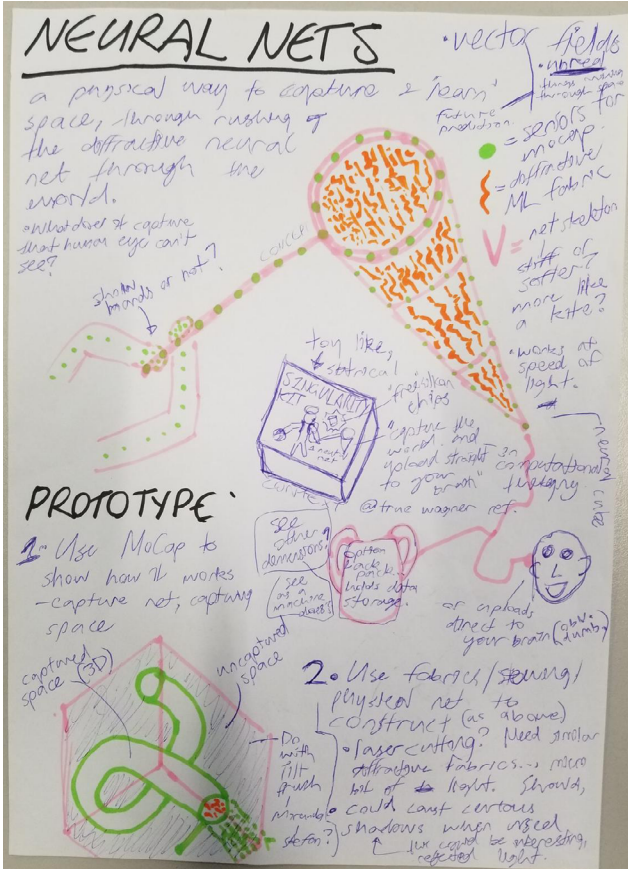 NEURAL NETS
a physical way to capture & "learn"
space, through rushing of
the diffractive neural
net through the
world.
• What does it capture
that human eye can't
see?
• vector fields
• unreal
things moving
through space
future
prediction.
= sensors for
mocap.
= diffractive
ML fabric
= net skeleton
stiff or
softer?
more like
a kite?
• works at
speed of
light.
show
hands or not?
toy like,
satirical
SINGULARITY
KIT
chips
"capture the
world and
upload straight
to your brain"
computational
@true wagner ref.
see
other
dimensions?
see
as a
machine
does?
option
back pack
data
storage.
or uploads
direct to
your brain (obv.
dumb)
PROTOTYPE:
1 - Use MoCap to
show how it works
- capture net, capturing
space
captured
space (3D)
uncaptured
space
Do
with
Tilt
Brush
2. Use fabrics / sewing /
physical net to
construct (as above)
• lasercutting? Need similar
diffractive fabrics... micro
bit of light. Should,
• could cast curious
shadows when used
this would be interesting,
reflected light.